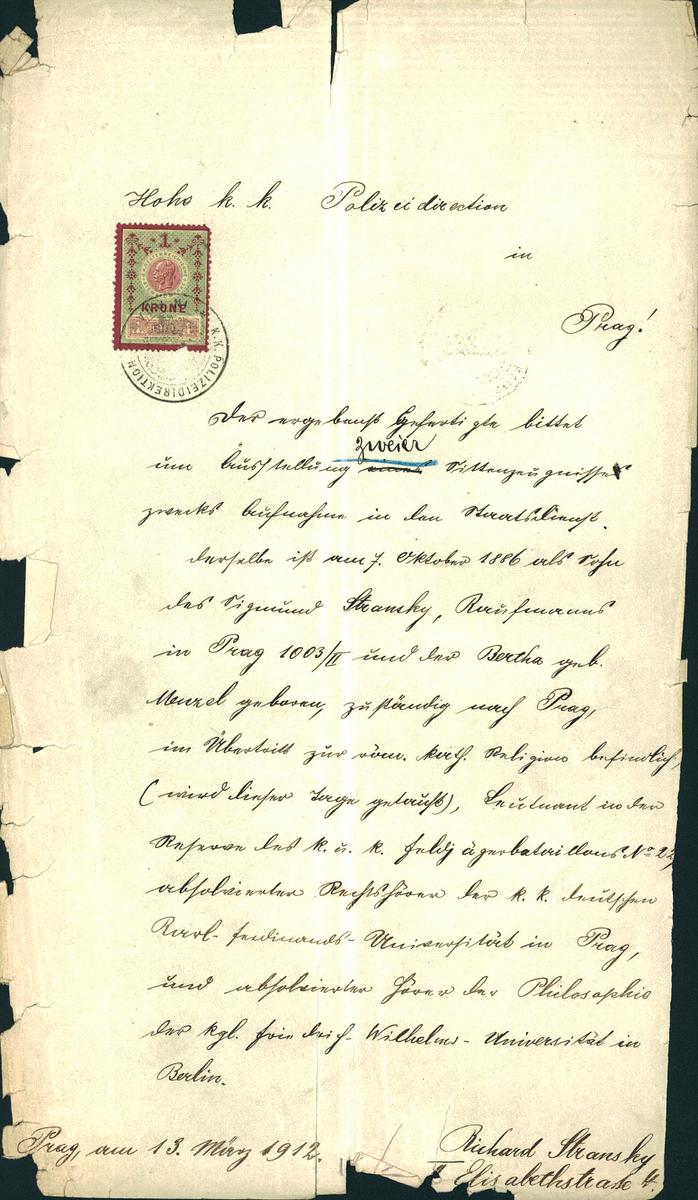 Hohe k. k. Polizeidirection
in
Prag!
1
KRONE
K.K. POLIZEIDIREKTION
Der ergebenst Gefertigte bittet
zweier
um Ausstellung eines Sittenzeugnisses
zwecks Aufnahme in den Staatsdienst.
Derselbe ist am 7. Oktober 1886 als Sohn
des Sigmund Stransky, Kaufmanns
in Prag 1003/II und der Bertha geb.
Menzel geboren, zuständig nach Prag,
im Übertritt zur röm. kath. Religion befindlich,
(wird dieser Tage getauft), Leutnant in der
Reserve des k. u. k. Feldjägerbataillons No 22,
absolvierter Rechtshörer der k. k. deutschen
Karl-Ferdinands-Universität in Prag,
und absolvierter Hörer der Philosophie
der kgl. Friedrich-Wilhelms-Universität in
Berlin.
Prag, am 13. März 1912.
Richard Stransky
II Elisabethstrase 4.